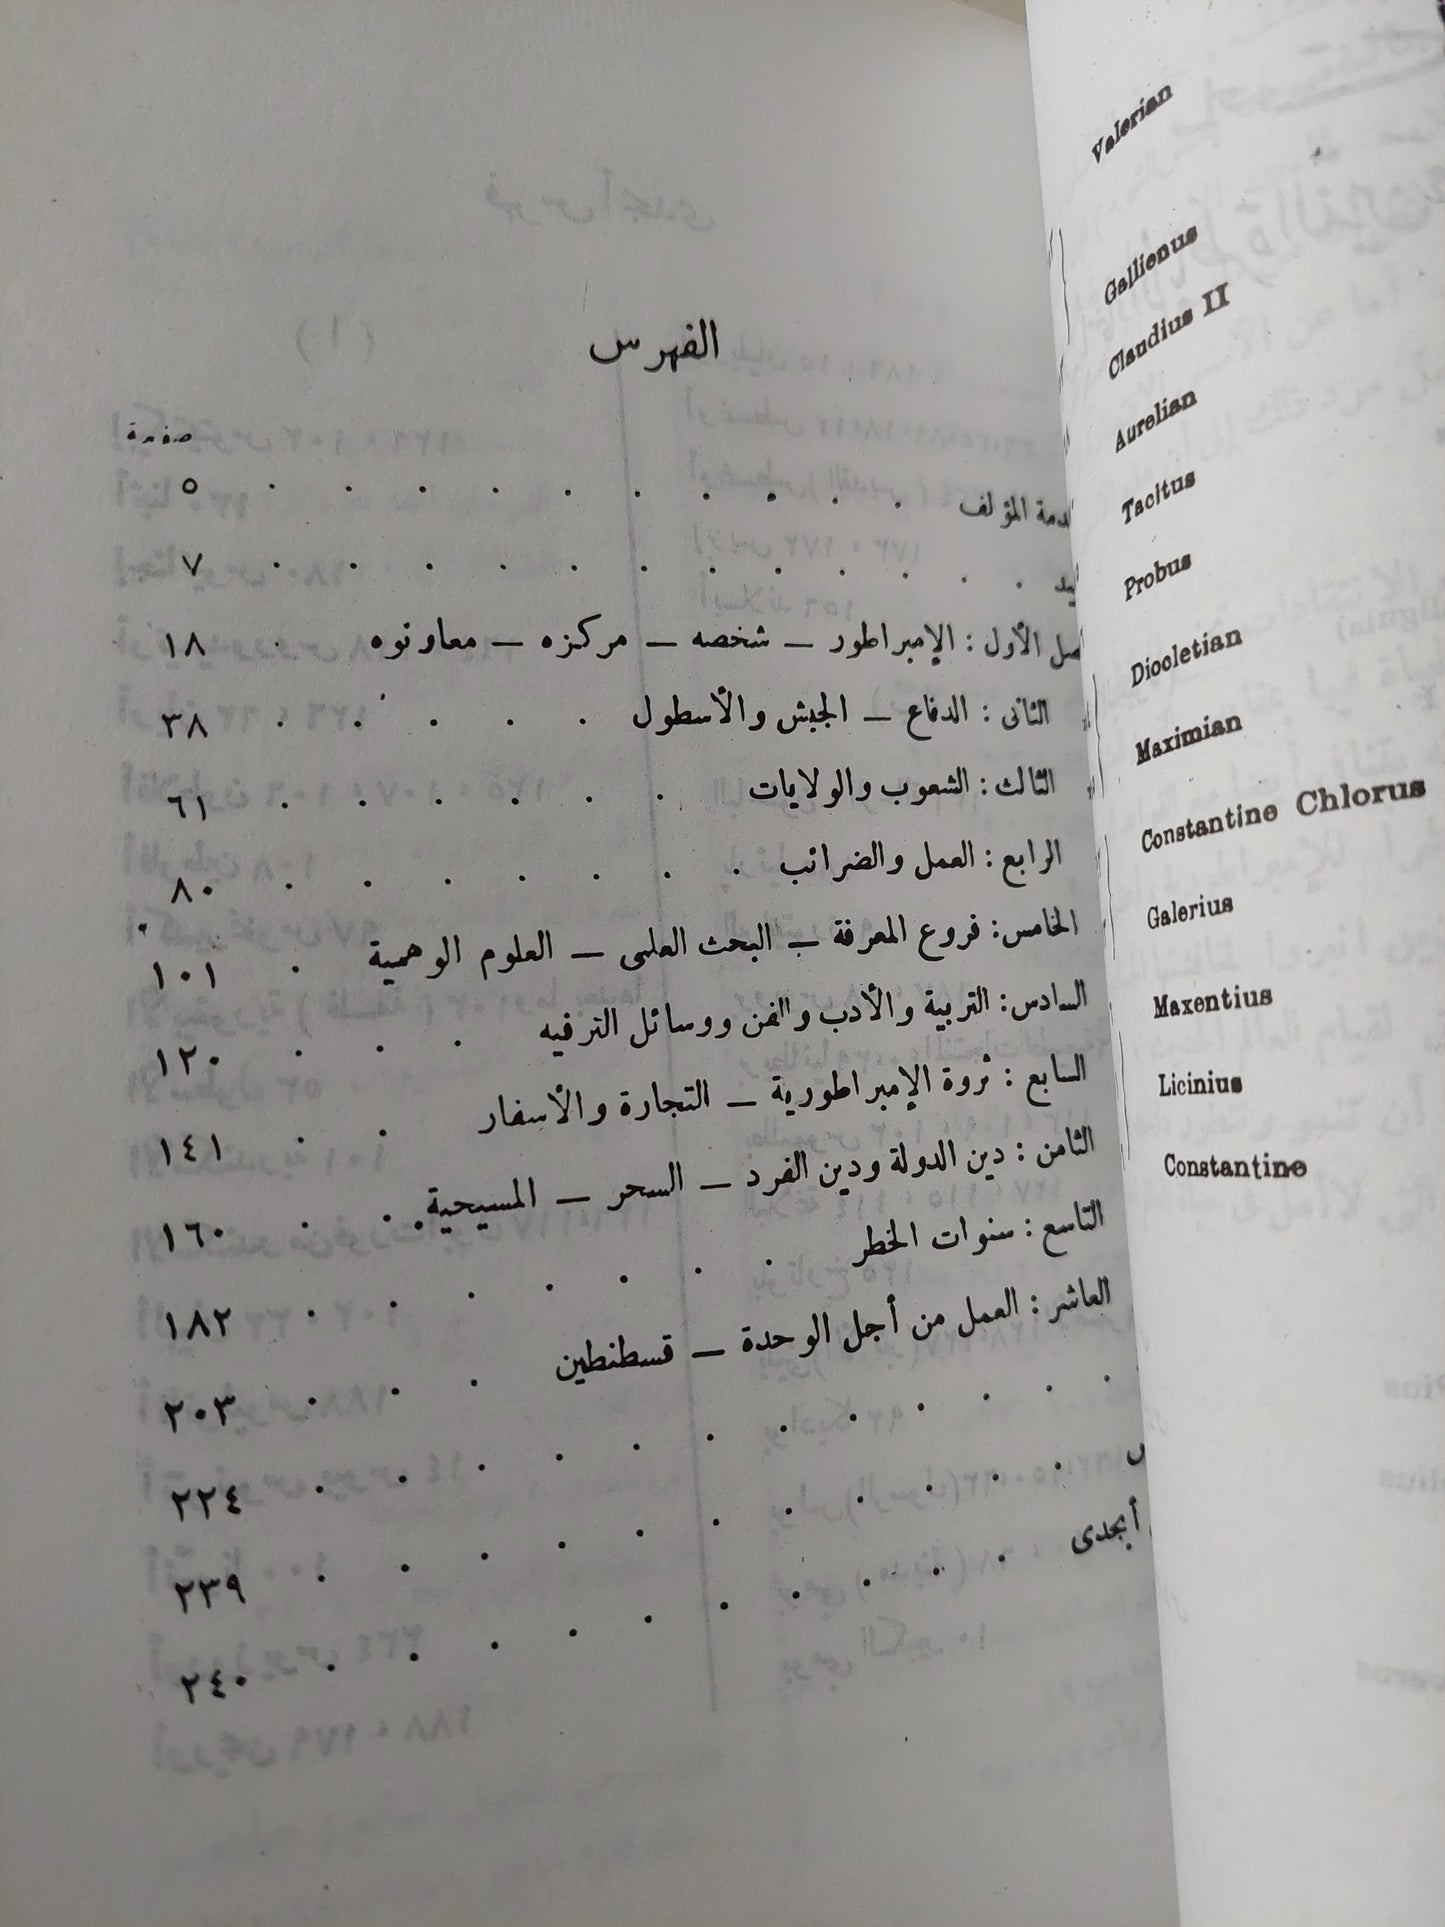 الفهرس
صفحة
دمة المؤلف . . . . . . . . . . ٥
يد . . . . . . . . . . . ٧
صل الأول : الإمبراطور – شخصه – مركزه – معاونوه . ١٨
» الثانى : الدفاع – الجيش والأسطول . . . . . ٣٨
» الثالث : الشعوب والولايات . . . . . . ٦١
الرابع : العمل والضرائب . . . . . . . ٨٠
الخامس : فروع المعرفة – البحث العلمى – العلوم الوهمية . ١٠١
السادس : التربية والأدب والفن ووسائل الترفيه . . . ١٢٠
السابع : ثروة الإمبراطورية – التجارة والأسفار . . ١٤١
الثامن : دين الدولة ودين الفرد – السحر – المسيحية . . ١٦٠
التاسع : سنوات الخطر . . . . . . . ١٨٢
العاشر : العمل من أجل الوحدة – قسطنطين . . . ٢٠٣
. . . . . . . . . . . . ٢٢٤
س . . . . . . . . . . . ٢٣٩
أبجدى . . . . . . . . . . ٢٤٠
Valerian
Gallienus
Claudius II
Aurelian
Tacitus
Probus
Diocletian
Maximian
Constantine Chlorus
Galerius
Maxentius
Licinius
Constantine